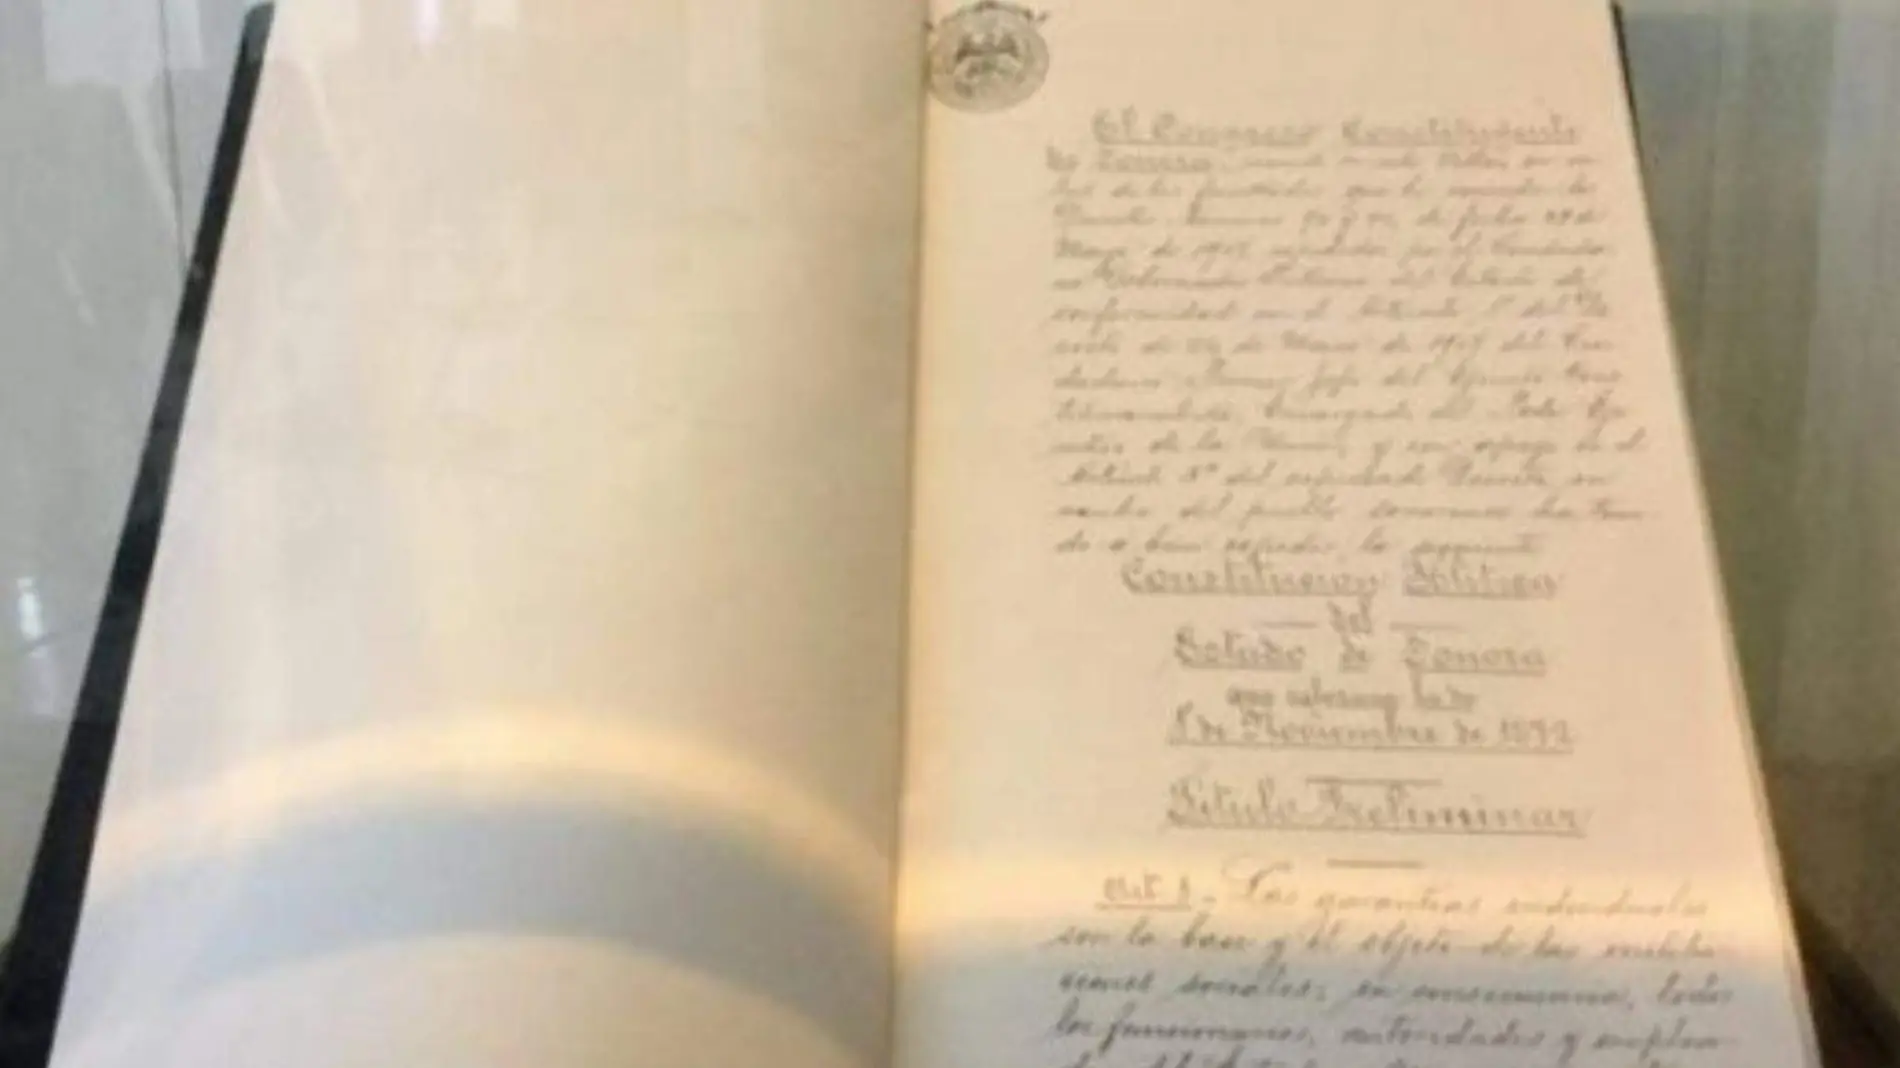 El Congreso Constituyente
de Sonora,
de las facultades que le
Decreto Números de fecha 29 de
Marzo de 1917, expedidos por el Ciudada-
no Gobernador Interino del Estado de
conformidad con el Artículo del De
creto de 22 de Marzo de 1917 del Ciu
dadano Primer Jefe del Ejército Cons
titucionalista, Encargado del Poder Eje
cutivo de la y con apego en el
Artículo 5° del expresado Decreto, en
nombre del pueblo sonorense ha teni
do a bien expedir la siguiente
Constitución Política
del
Estado de Sonora
que reforma la de
de Noviembre de 1872
Título Preliminar
Art. 1.- Las garantías individuales
son la base y el objeto de las institu
ciones sociales; en consecuencia, todos
los funcionarios, autoridades y emplea